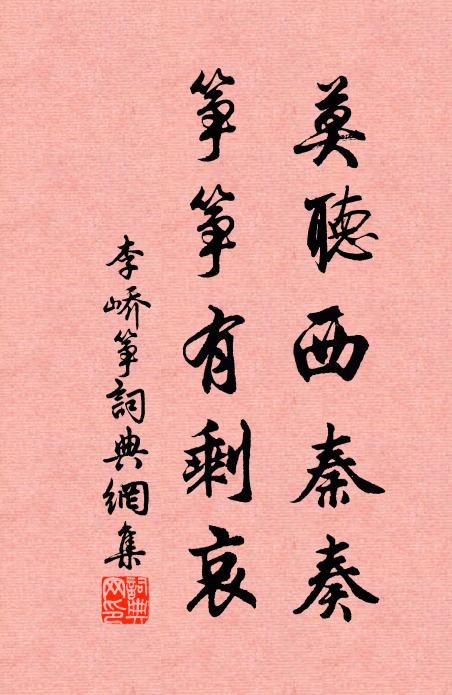 莫聽西秦奏
箏箏有剩哀
李嶠箏詞典網集
詞典网印